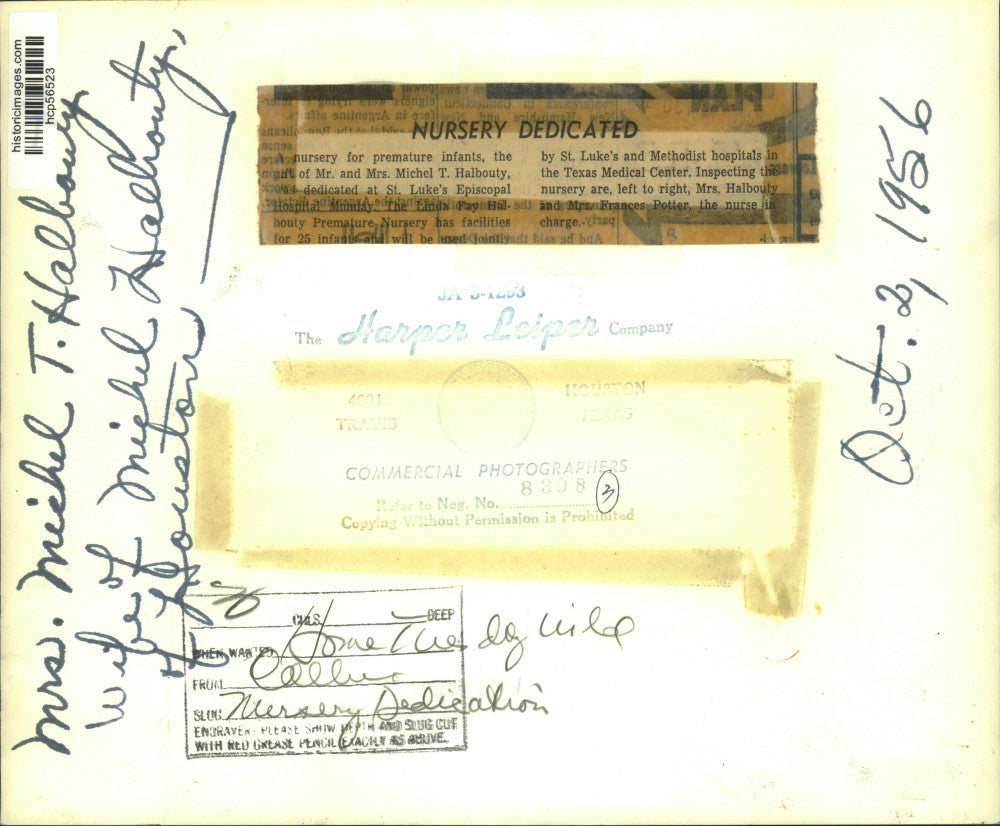 historicimages.com
hcp56523
Mrs. Michel T. Halbouty
Wife of Michel Halbouty,
of Houston
NURSERY DEDICATED
A nursery for premature infants, the
gift of Mr. and Mrs. Michel T. Halbouty,
was dedicated at St. Luke's Episcopal
Hospital Monday. The Linda Fay Hal-
bouty Premature Nursery has facilities
for 25 infants and will be used jointly
by St. Luke's and Methodist hospitals in
the Texas Medical Center. Inspecting the
nursery are, left to right, Mrs. Halbouty
and Mrs. Frances Potter, the nurse in
charge.
Oct. 3, 1956
JA 3-1293
The Harper Leiper Company
4001 HOUSTON
TRAVIS TEXAS
COMMERCIAL PHOTOGRAPHERS
Refer to Neg. No. 8398 3
Copying Without Permission is Prohibited
COLS. DEEP
WHEN WANTED Home
FROM
SLUG: Nursery Dedication
ENGRAVER: PLEASE SHOW DEPTH AND SLUG CUT
WITH RED GREASE PENCIL EXACTLY AS ABOVE.